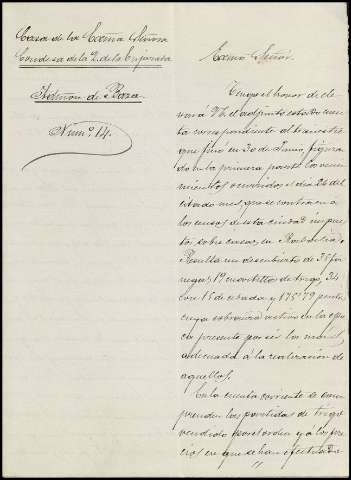 Casa de la Excma Señora
Condesa de la V. de la Enjarada
Admon de Baza
Núm.º 14.
Excmo Señor.
Tengo el honor de ele-
var á V.E. el adjunto estado cuen-
ta correspondiente al trimestre
que finó en 30 de Junio, figuran-
do en la primera parte los venci-
mientos ocurridos el dia 24 del
citado mes, que se contraen á
los censos de esta ciudad impues-
tos sobre casas, en
Resulta un descubierto de 35 fa-
negas, 19 cuartillos de trigo, 34
con 15 de cebada y 175'79 pesetas
cuya cobranza activo en la épo-
ca presente por ser la más
adecuada á la realizacion de
aquellos.
En la cuenta corriente se com-
prenden las partidas de trigo
vendido por el orden y a los pre-
cios en que se han efectuado